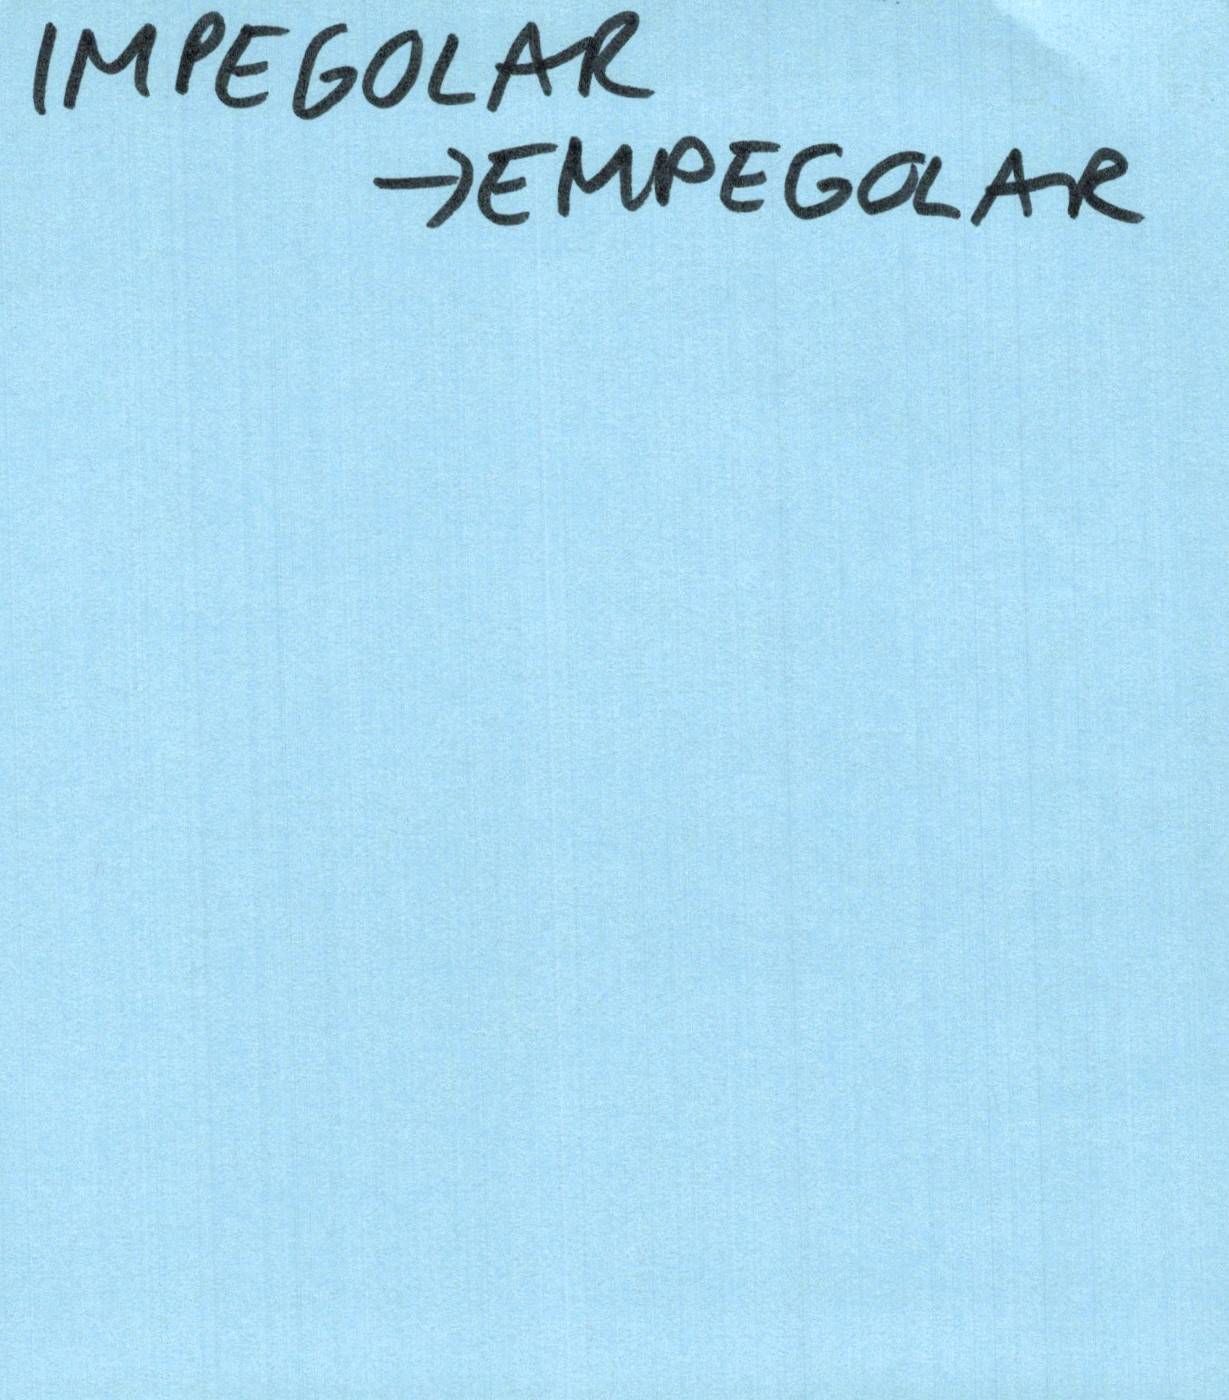 IMPEGOLAR
→EMPEGOLAR